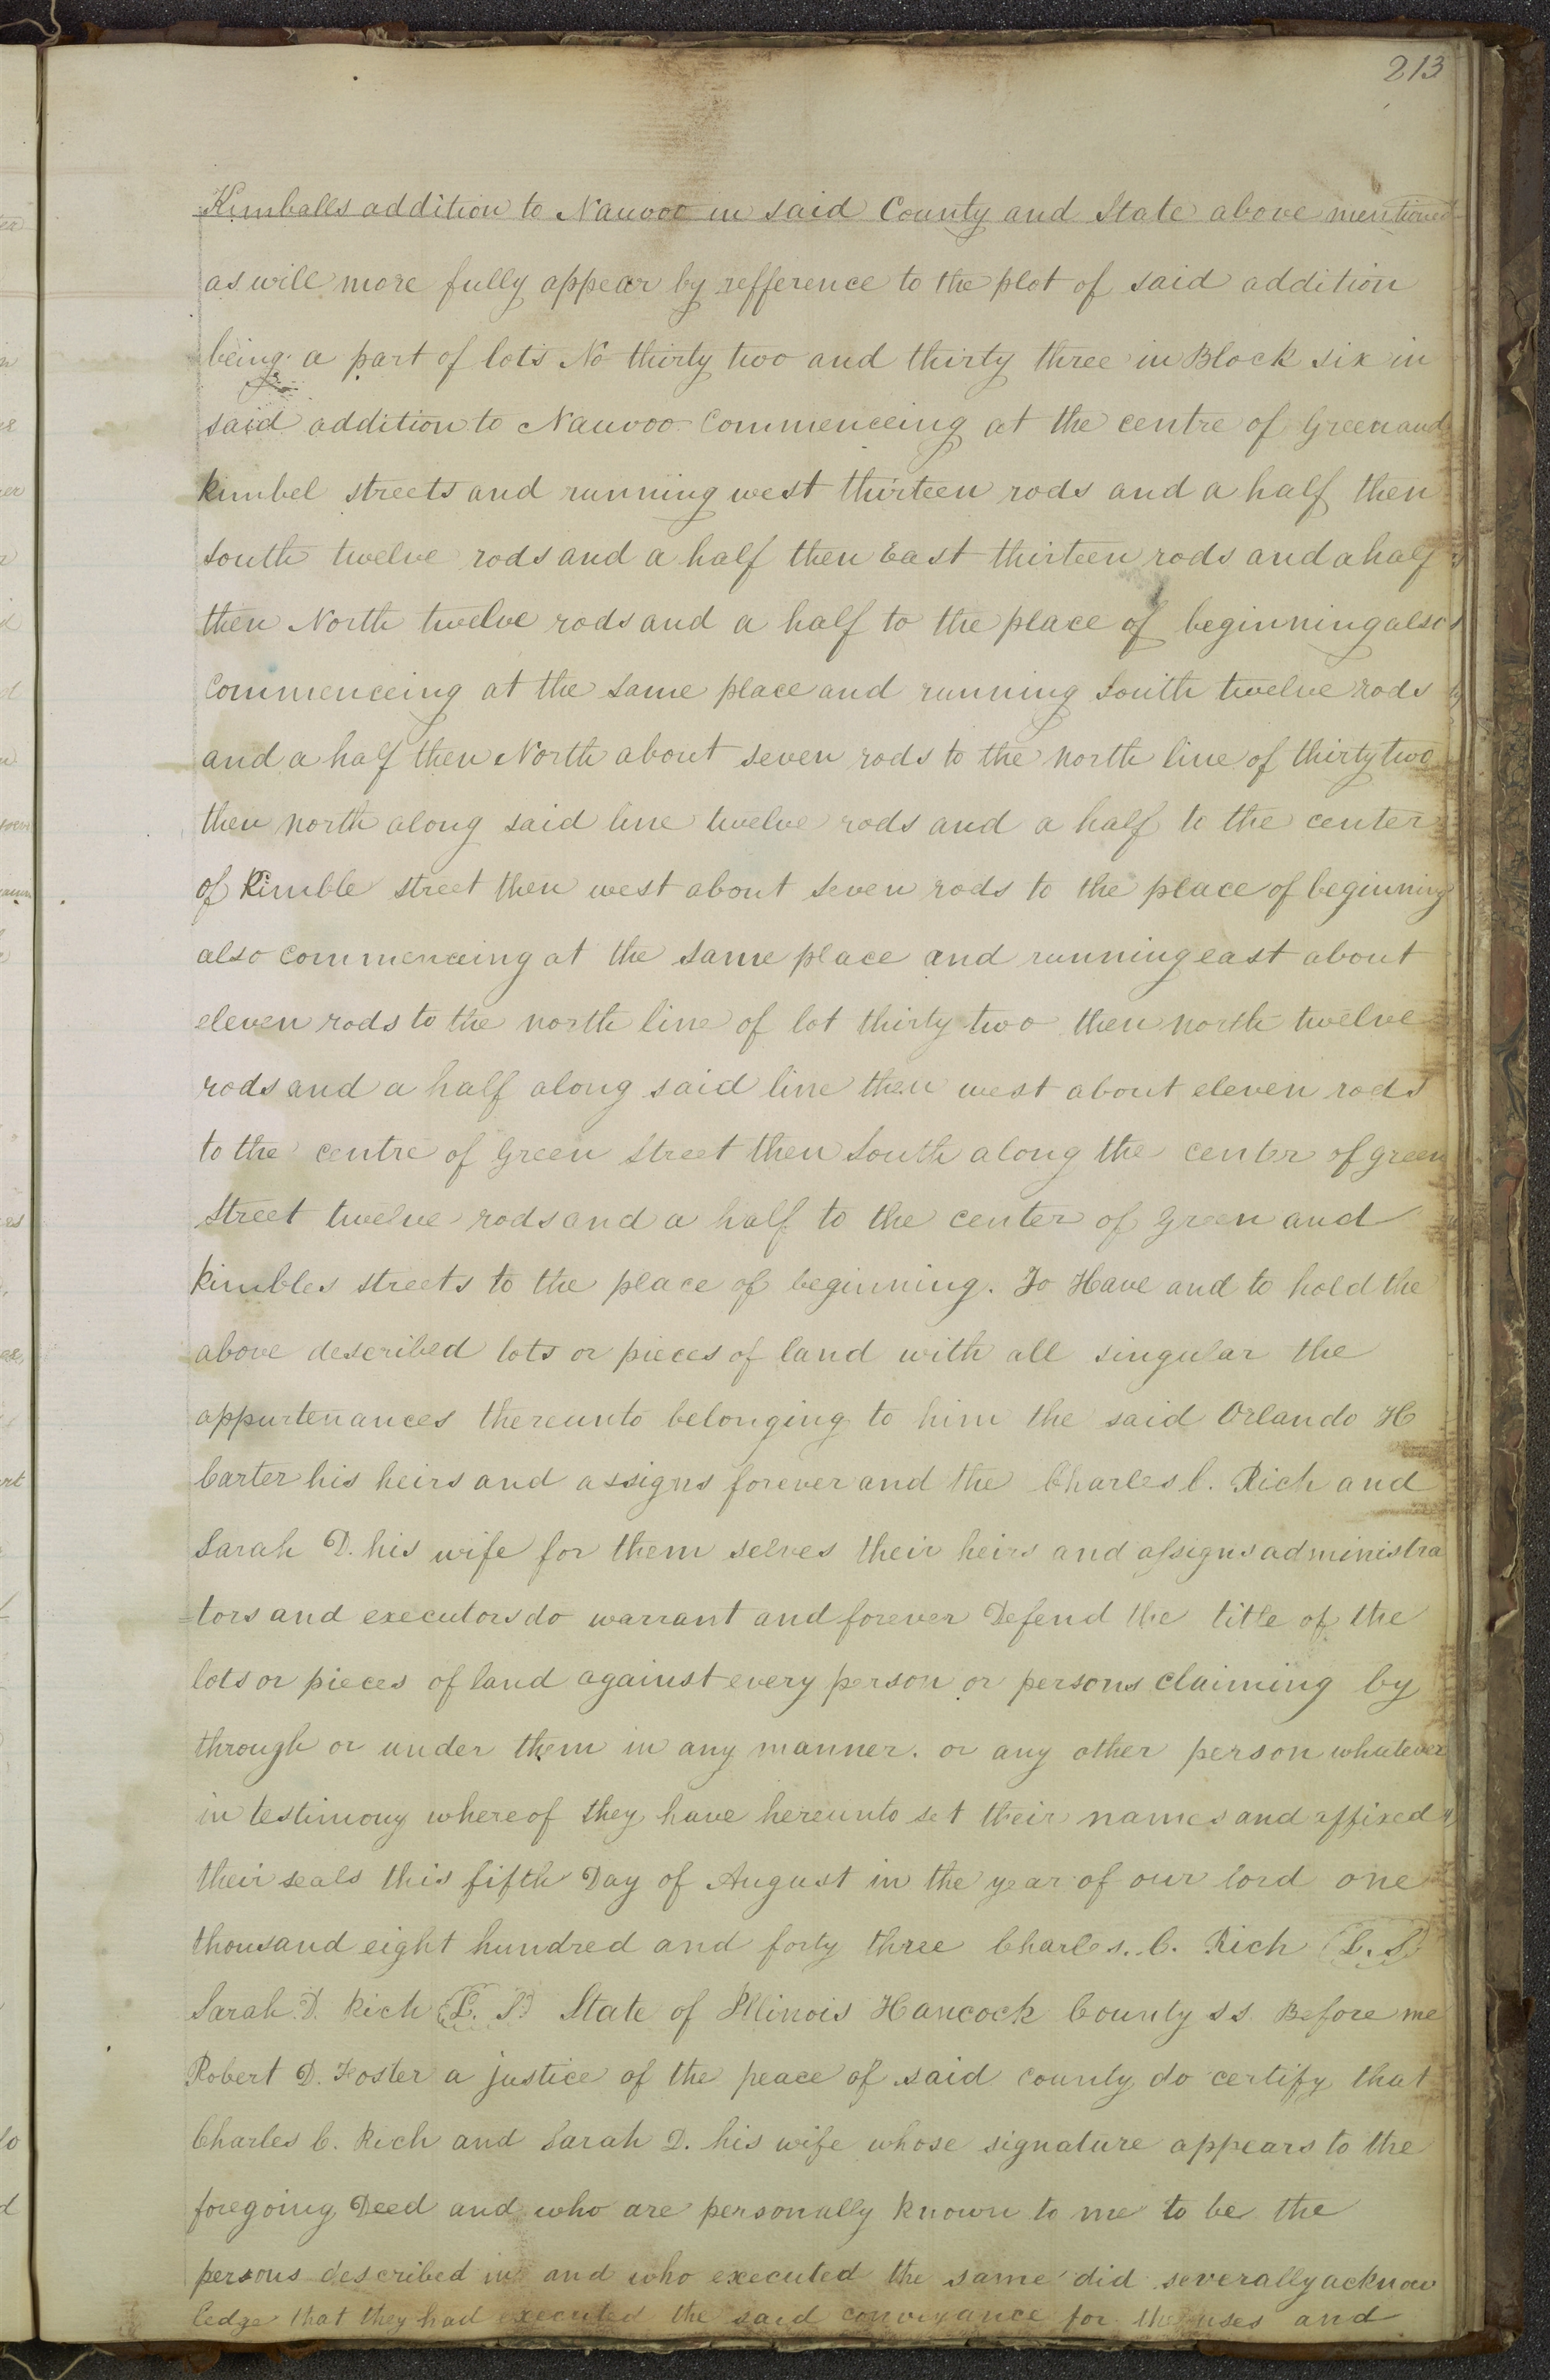 213
Kimballs addition to Nauvoo in said County and State above mentioned
as will more fully appear by refference to the plot of said addition
being a part of lots No thirty two and thirty three in Block six in
said addition to Nauvoo Commenceing at the centre of Green and
kimbel streets and running west thirteen rods and a half then
South twelve rods and a half then East thirteen rods and a half
then North twelve rods and a half to the place of beginning also
Commenceing at the same place and running South twelve rods
and a half then North about seven rods to the north line of thirty two
then north along said line twelve rods and a half to the center
of Kimble street then west about seven rods to the place of beginning
also commenceing at the same place and running east about
eleven rods to the north line of lot thirty two then north twelve
rods and a half along said line then west about eleven rods
to the centre of Green Street then South along the center of green
street twelve rods and a half to the center of Green and
kimbles streets to the place of beginning. To Have and to hold the
above described lots or pieces of land with all singular the
appurtenances thereunto belonging to him the said Orlando H
Carter his heirs and assigns forever and the Charles C. Rich and
Sarah D. his wife for them selves their heirs and assigns administra
=tors and executors do warrant and forever Defend the title of the
lots or pieces of land against every person or persons claiming by
through or under them in any manner. or any other person whatever
in testimony whereof they have hereunto set their names and affixed
their seals this fifth Day of August in the year of our lord one
thousand eight hundred and forty three Charles. C. Rich (L. S)
Sarah D. Rich (L. S.) State of Illinois Hancock County SS. Before me
Robert D. Foster a justice of the peace of said county do certify that
Charles C. Rich and Sarah D. his wife whose signature appears to the
foregoing Deed and who are personally known to me to be the
persons described in and who executed the same did severally acknow
ledge that they had executed the said conveyance for the uses and